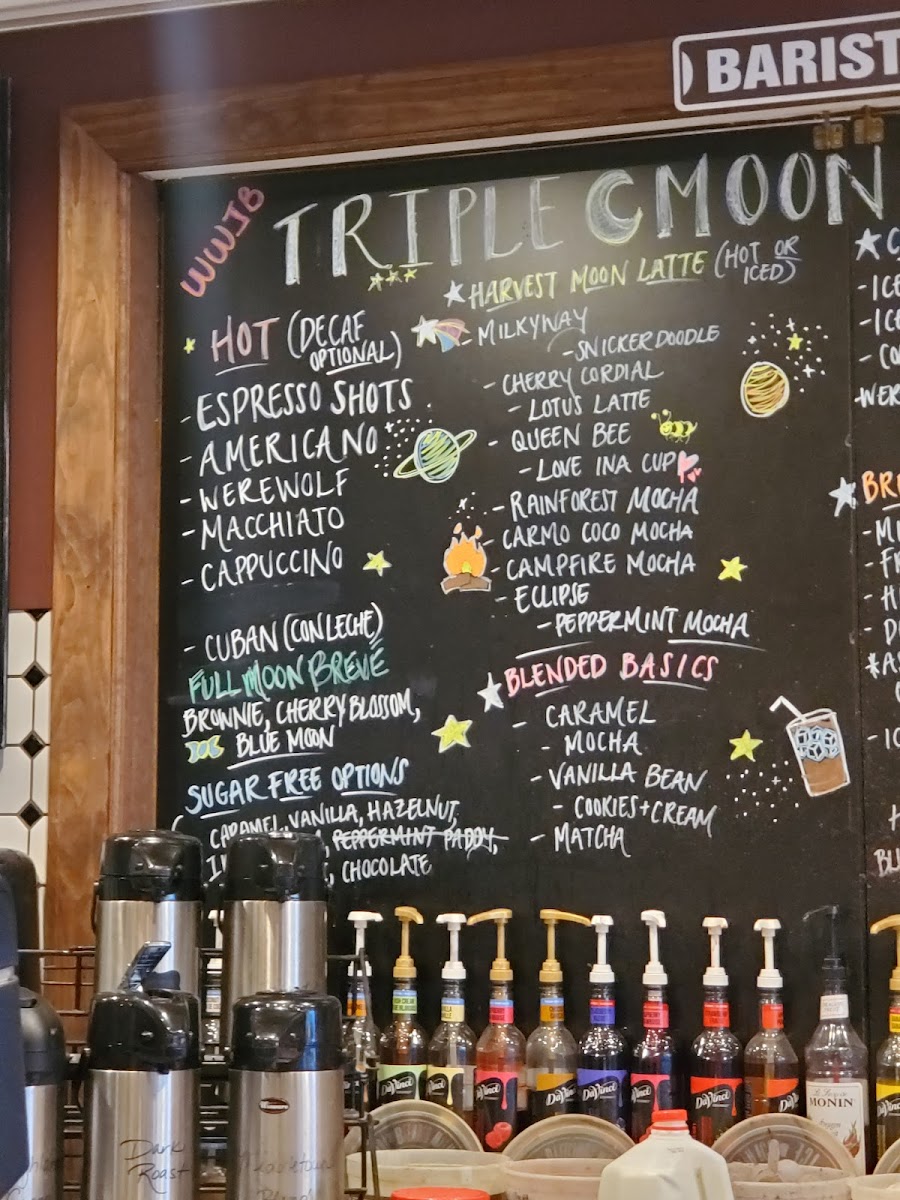 BARIST
WWJB
TRIPLE MOON
HOT (DECAF OPTIONAL)
- ESPRESSO SHOTS
- AMERICANO
- WEREWOLF
- MACCHIATO
- CAPPUCCINO
- CUBAN (CON LECHE)
FULL MOON BREVÉ
BROWNIE, CHERRY BLOSSOM,
BLUE MOON
SUGAR FREE OPTIONS
CARAMEL, VANILLA, HAZELNUT,
PEPPERMINT PADDY,
CHOCOLATE
HARVEST MOON LATTE (HOT OR ICED)
- MILKYWAY
- SNICKERDOODLE
- CHERRY CORDIAL
- LOTUS LATTE
- QUEEN BEE
- LOVE IN A CUP
- RAINFOREST MOCHA
- CARMO COCO MOCHA
- CAMPFIRE MOCHA
- ECLIPSE
- PEPPERMINT MOCHA
BLENDED BASICS
- CARAMEL
- MOCHA
- VANILLA BEAN
- COOKIES + CREAM
- MATCHA
- ICE
- ICE
WER
BR
Dark
Roast
DaVinci
DaVinci
DaVinci
DaVinci
DaVinci
DaVinci
DaVinci
MONIN